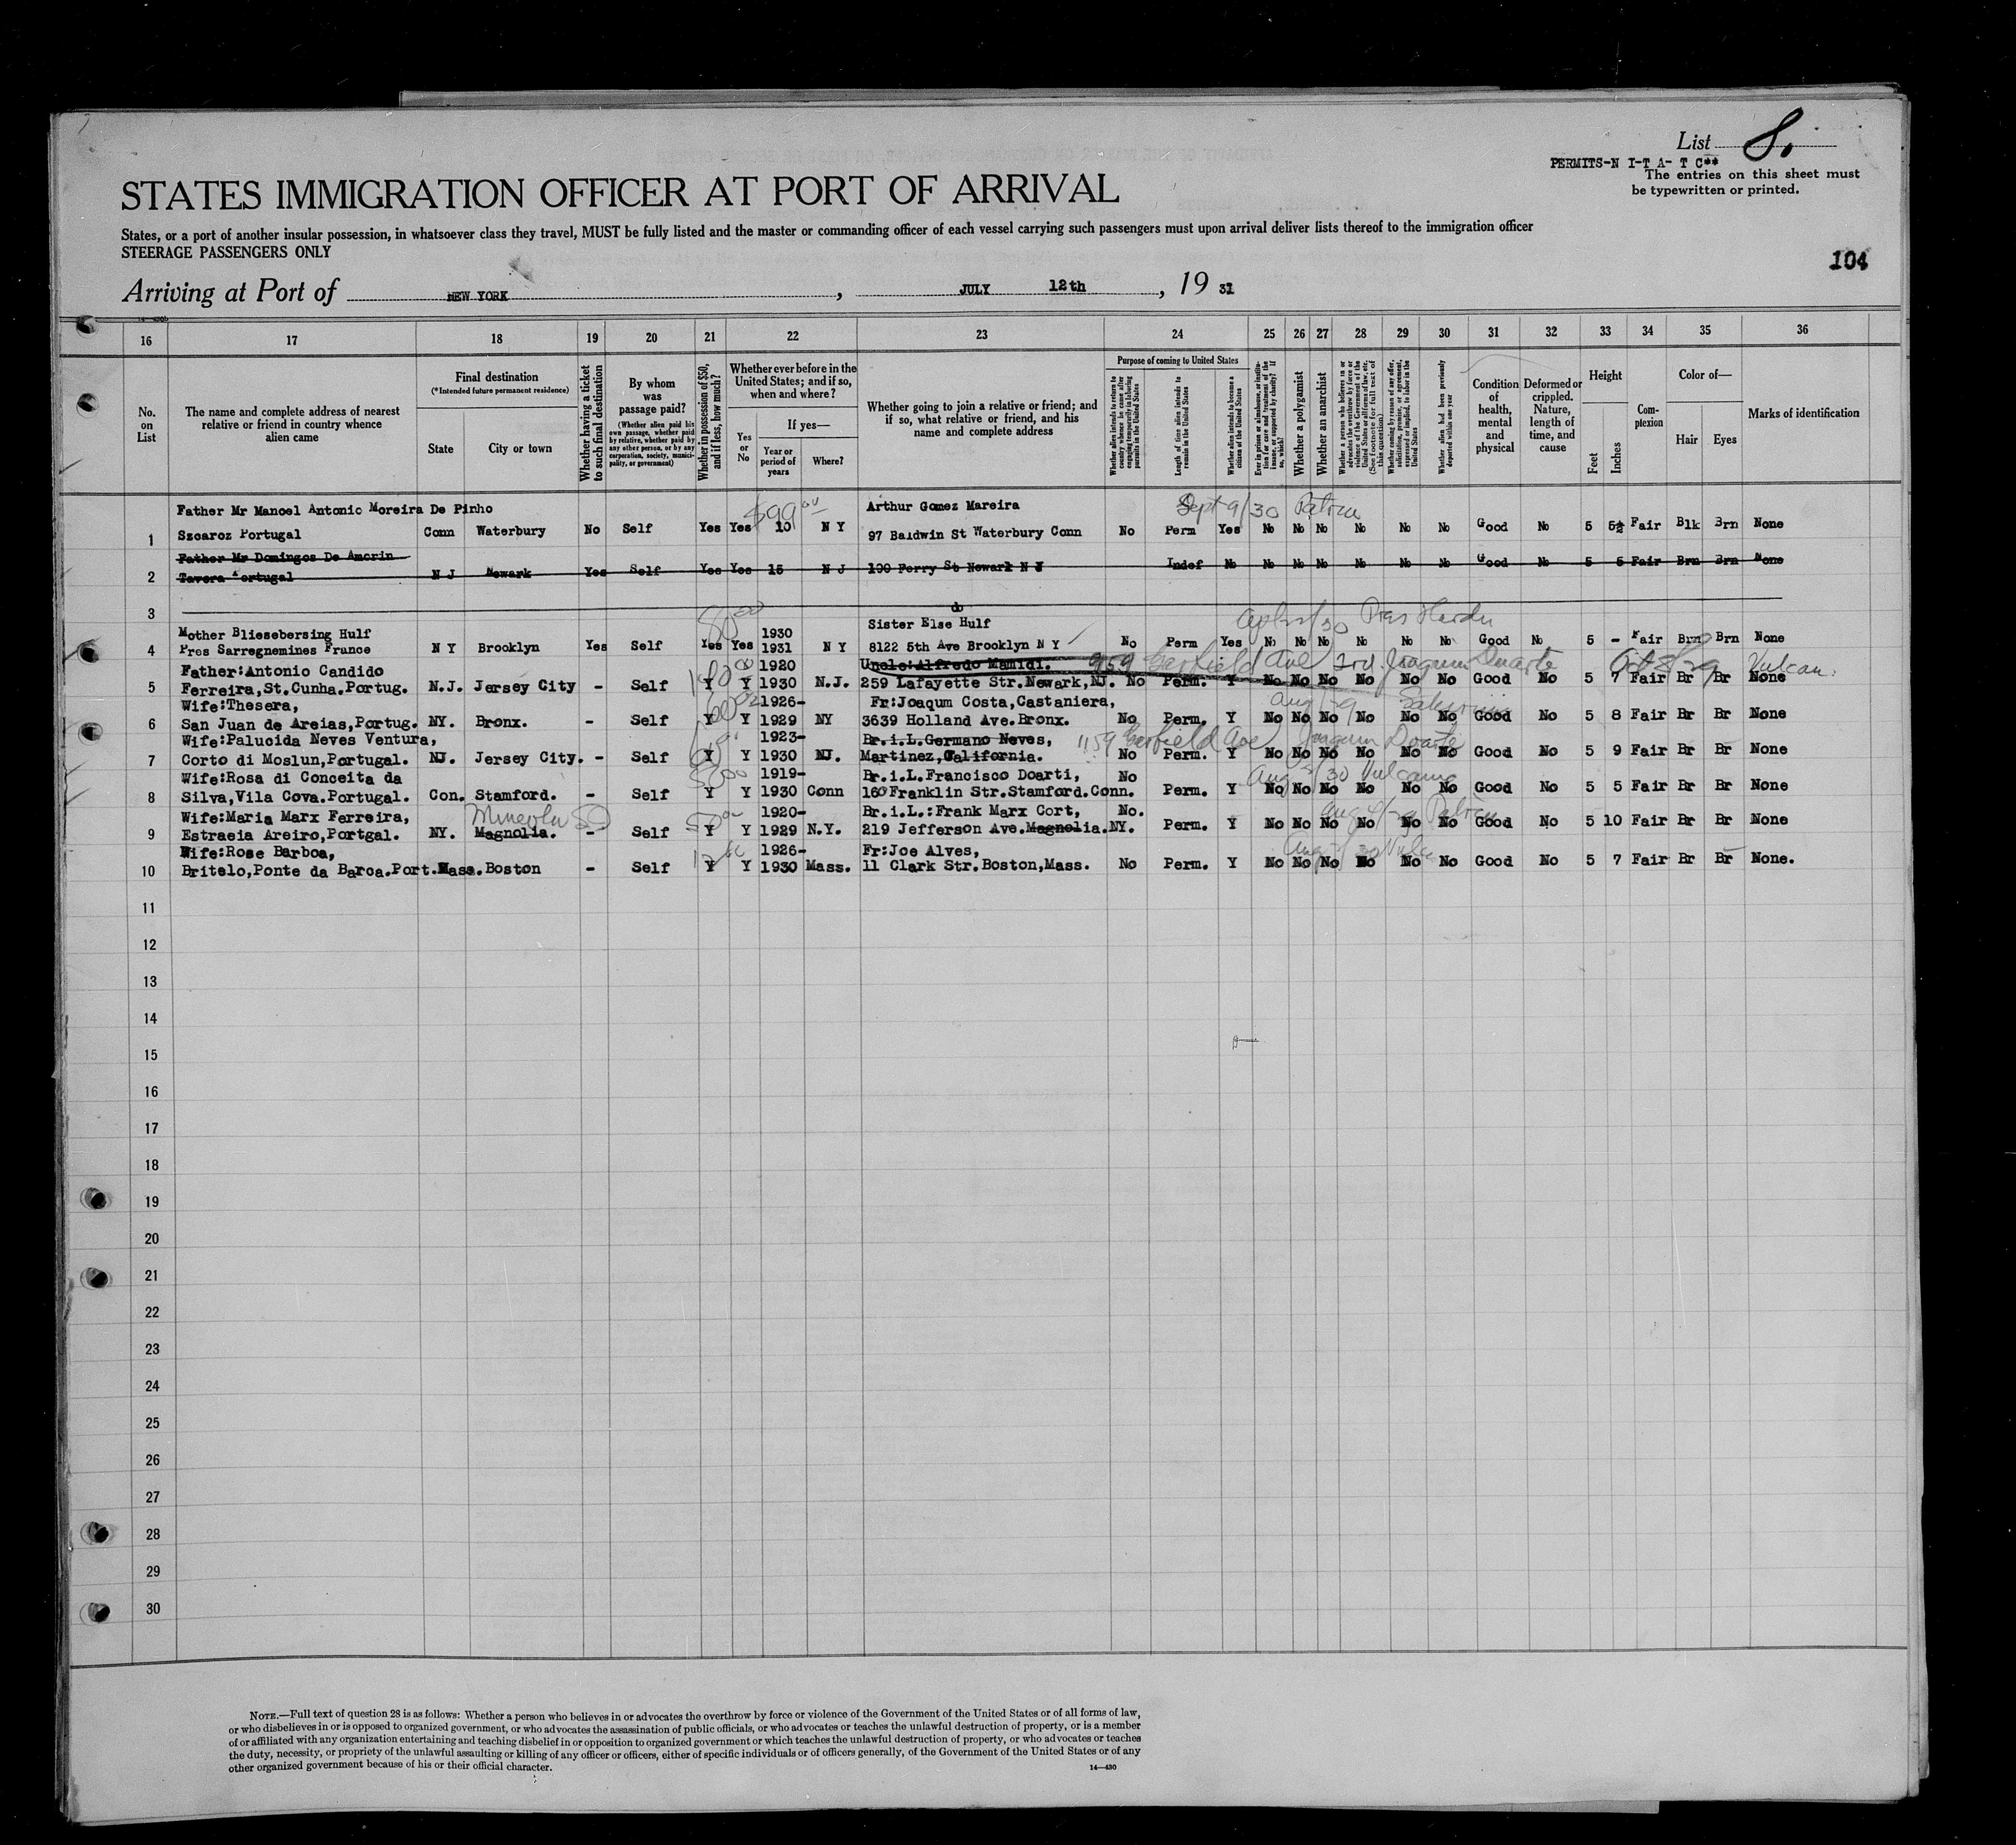 List 8.
PERMITS-N I-T A- T C**
The entries on this sheet must
be typewritten or printed.
STATES IMMIGRATION OFFICER AT PORT OF ARRIVAL
States, or a port of another insular possession, in whatsoever class they travel, MUST be fully listed and the master or commanding officer of each vessel carrying such passengers must upon arrival deliver lists thereof to the immigration officer
STEERAGE PASSENGERS ONLY
104
Arriving at Port of NEW YORK, JULY 12th, 19 31
16 17 18 19 20 21 22 23 24 25 26 27 28 29 30 31 32 33 34 35 36
No. on List
The name and complete address of nearest relative or friend in country whence alien came
Final destination
(*Intended future permanent residence)
State
City or town
Whether having a ticket to such final destination
By whom was passage paid?
(Whether alien paid his own passage, whether paid by relative, whether paid by any other person, or by any corporation, society, municipality, or government)
Whether in possession of $50, and if less, how much?
Whether ever before in the United States; and if so, when and where?
Yes or No
If yes—
Year or period of years
Where?
Whether going to join a relative or friend; and if so, what relative or friend, and his name and complete address
Purpose of coming to United States
Whether alien intends to return to country whence he came after engaging temporarily in laboring pursuits in the United States
Length of time alien intends to remain in the United States
Whether alien intends to become a citizen of the United States
Ever in prison or almshouse, or institution for care and treatment of the insane, or supported by charity? If so, which?
Whether a polygamist
Whether an anarchist
Whether a person who believes in or advocates the overthrow by force or violence of the Government of the United States or all forms of law, etc. (See footnote for full text of this question)
Whether coming by reason of any offer, solicitation, promise, or agreement, expressed or implied, to labor in the United States
Whether alien had been previously deported within one year
Condition of health, mental and physical
Deformed or crippled. Nature, length of time, and cause
Height
Feet
Inches
Complexion
Color of—
Hair
Eyes
Marks of identification
Father Mr Manoel Antonio Moreira De Pinho Arthur Gomez Mareira Sept 9/30
1 Szcaroz Portugal Conn Waterbury No Self Yes Yes $99 10 N Y 97 Baldwin St Waterbury Conn No Perm Yes No No No No No No Good No 5 5½ Fair Blk Brn None
Father Mr Domingos De Amorin
2 Tavora Portugal N J Newark Yes Self Yes Yes 15 N J 100 Ferry St Newark N J Indef No No No No No No No Good No 5 5 Fair Brn Brn None
3 do
Mother Bliesebersing Hulf 80 1930 Sister Else Hulf
4 Pres Sarregnemines France N Y Brooklyn Yes Self Yes Yes 1931 N Y 8122 5th Ave Brooklyn N Y No Perm Yes No No No No No No Good No 5 - Fair Brn Brn None
Father:Antonio Candido 1920 Uncle:Alfredo Mamidi. Garfield Ave Joaquim Duarte Oct 8/29 Vulcan.
5 Ferreira,St.Cunha.Portug. N.J. Jersey City - Self Y Y 1930 N.J. 259 Lafayette Str.Newark,NJ. No Perm. Y No No No No No No Good No 5 7 Fair Br Br None
Wife:Thesera, 1926- Fr:Joaqum Costa,Castaniera,
6 San Juan de Areias,Portug. NY. Bronx. - Self Y Y 1929 NY 3639 Holland Ave.Bronx. No Perm. Y No No No No No No Good No 5 8 Fair Br Br None
Wife:Palucida Neves Ventura, 1923- Br.i.L.Germano Neves, 1159 Garfield Ave Joaquim Doarte
7 Corto di Moslun,Portugal. NJ. Jersey City. - Self Y Y 1930 NJ. Martinez,California. No Perm. Y No No No No No No Good No 5 9 Fair Br Br None
Wife:Rosa di Conceita da 1919- Br.i.L.Francisco Doarti, No
8 Silva,Vila Cova.Portugal. Con. Stamford. - Self Y Y 1930 Conn 160 Franklin Str.Stamford.Conn. Perm. Y No No No No No No Good No 5 5 Fair Br Br None
Wife:Maria Marx Ferreira, Mineola 1920- Br.i.L.:Frank Marx Cort, No.
9 Estraeia Areiro,Portgal. NY. Magnolia. - Self Y Y 1929 N.Y. 219 Jefferson Ave.Magnolia.NY. Perm. Y No No No No No No Good No 5 10 Fair Br Br None
Wife:Rose Barboa, 1926- Fr:Joe Alves,
10 Britelo,Ponte da Barca.Port. Mass. Boston - Self Y Y 1930 Mass. 11 Clark Str.Boston,Mass. No Perm. Y No No No No No No Good No 5 7 Fair Br Br None.
11
12
13
14
15
16
17
18
19
20
21
22
23
24
25
26
27
28
29
30
NOTE.—Full text of question 28 is as follows: Whether a person who believes in or advocates the overthrow by force or violence of the Government of the United States or of all forms of law,
or who disbelieves in or is opposed to organized government, or who advocates the assassination of public officials, or who advocates or teaches the unlawful destruction of property, or is a member
of or affiliated with any organization entertaining and teaching disbelief in or opposition to organized government or which teaches the unlawful destruction of property, or who advocates or teaches
the duty, necessity, or propriety of the unlawful assaulting or killing of any officer or officers, either of specific individuals or of officers generally, of the Government of the United States or of any
other organized government because of his or their official character.
14—430